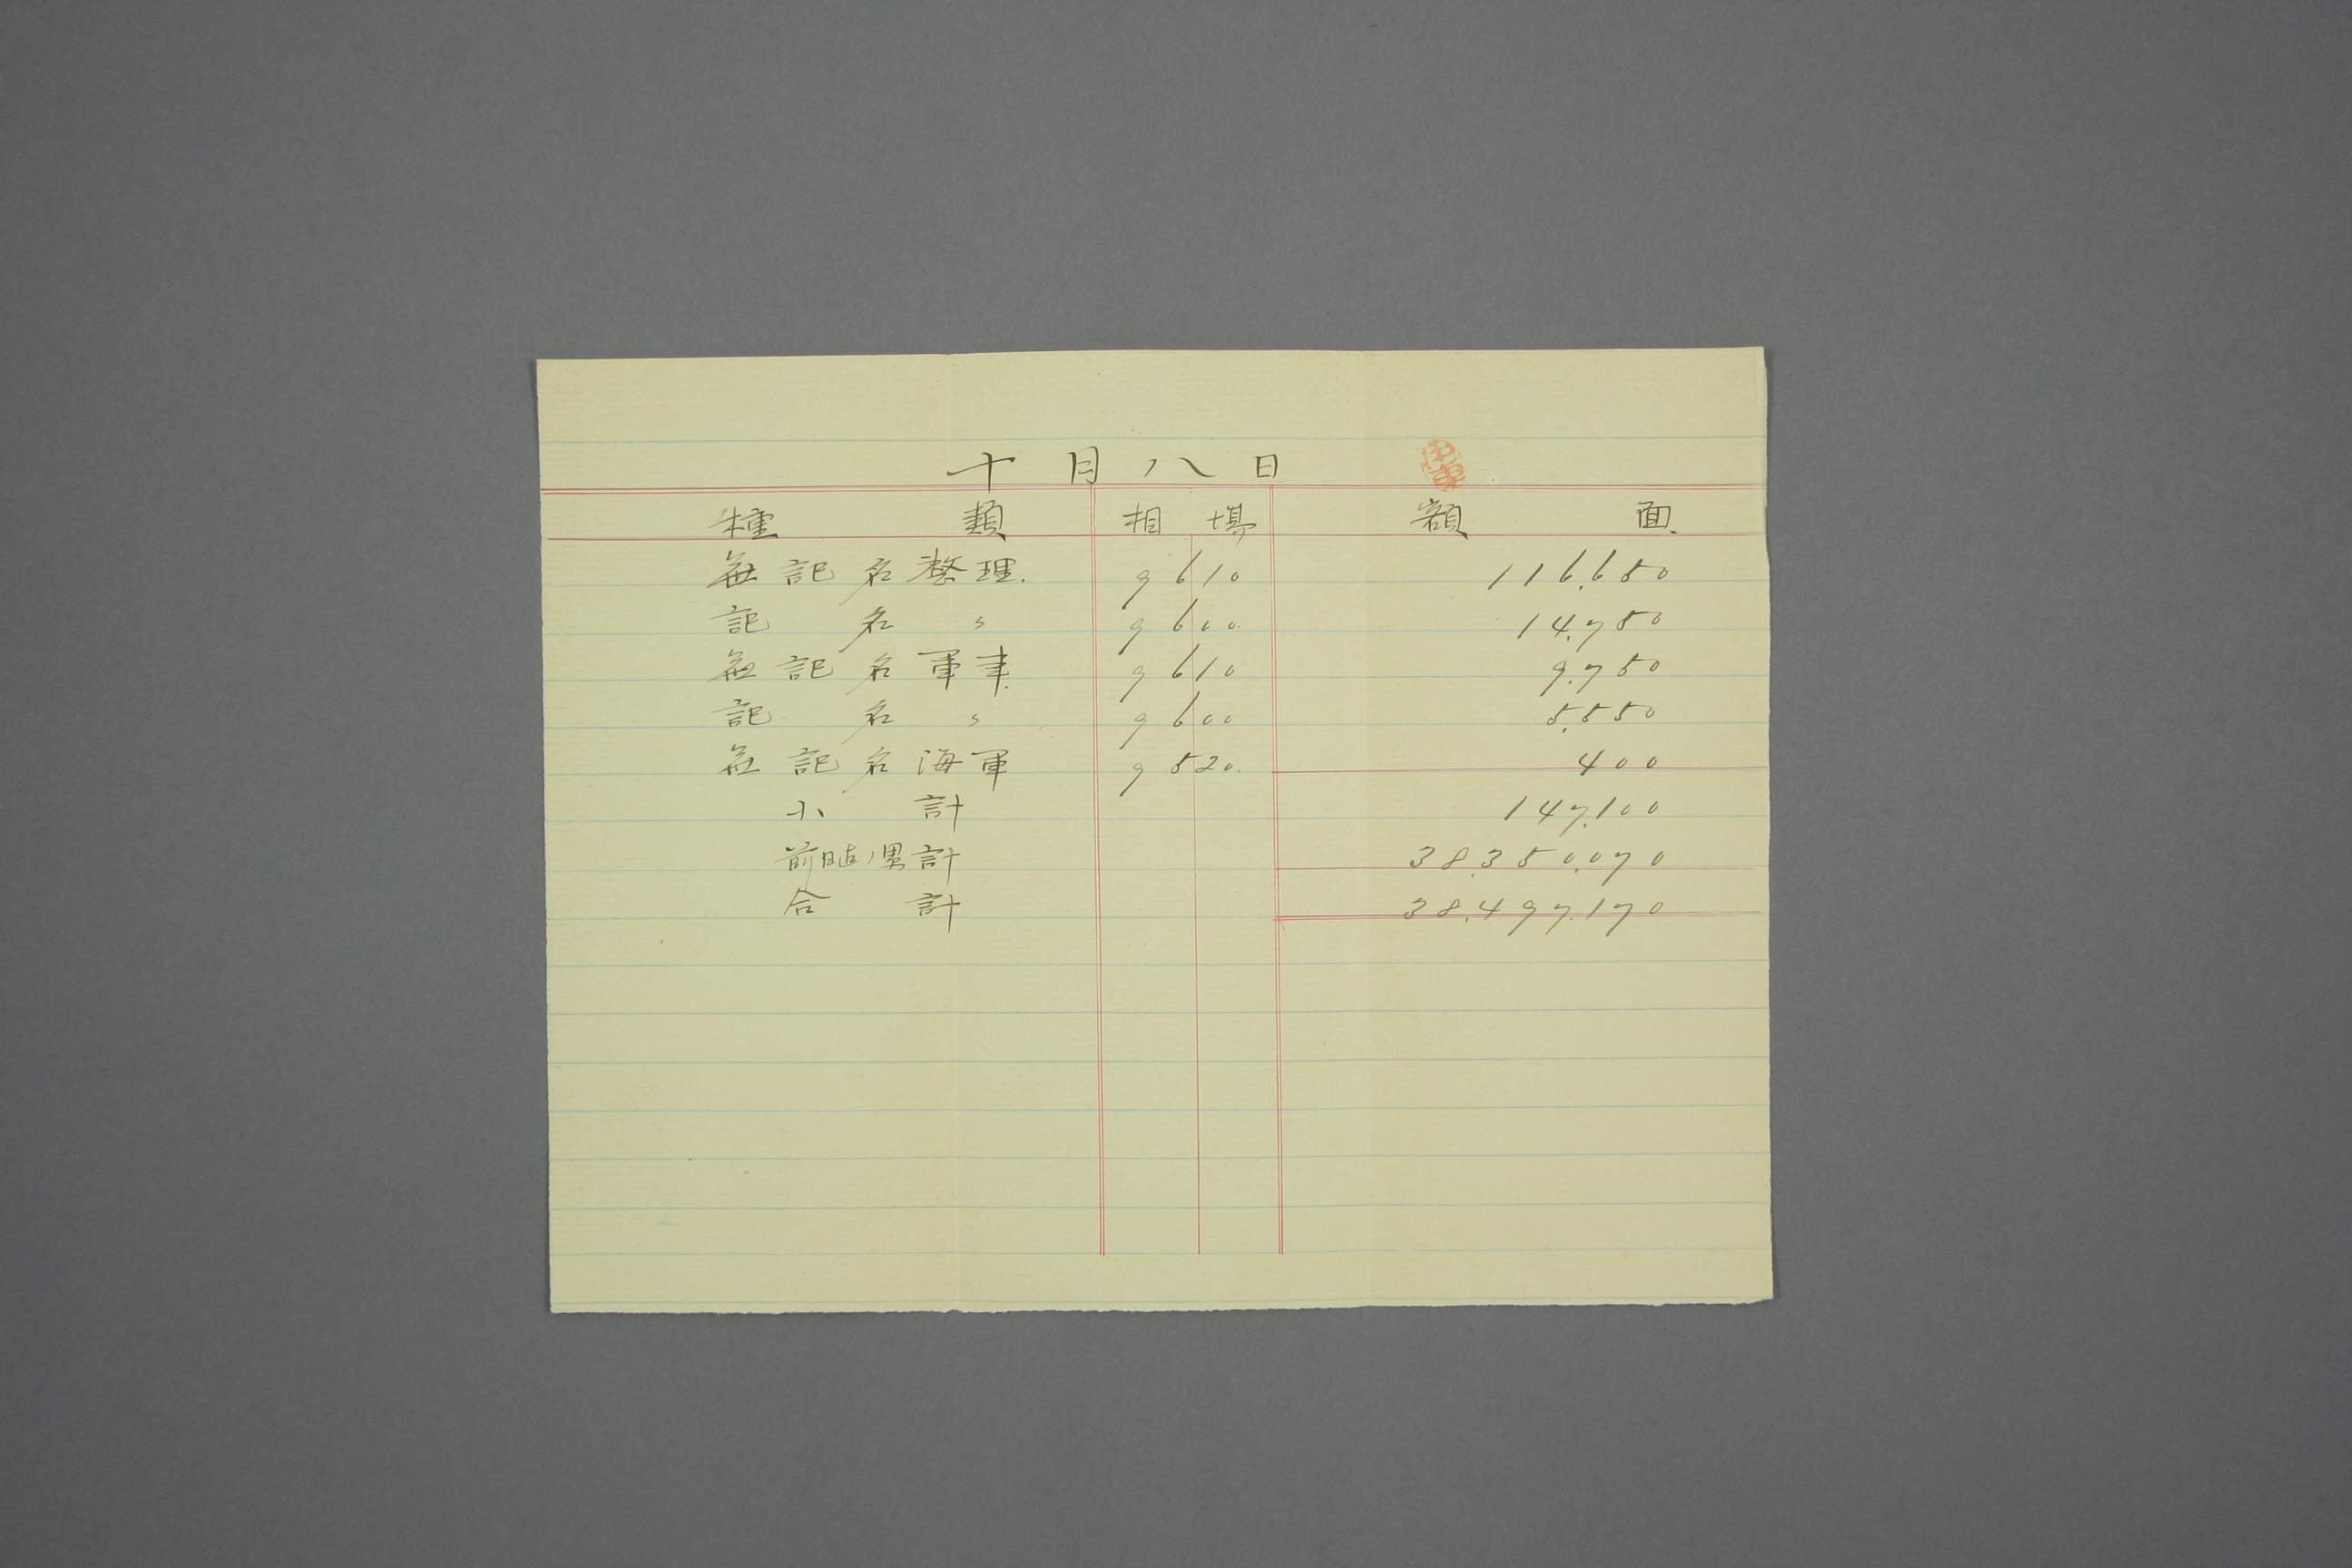 十月八日
種類 相場 額面
無記名整理. 9610 116,650
記名〃 9600 14,750
無記名軍事 9610 9,750
記名〃 9600 5,550
無記名海軍 9520 400
小計 147,100
前日迄ノ累計 38,350,070
合計 38,497,170